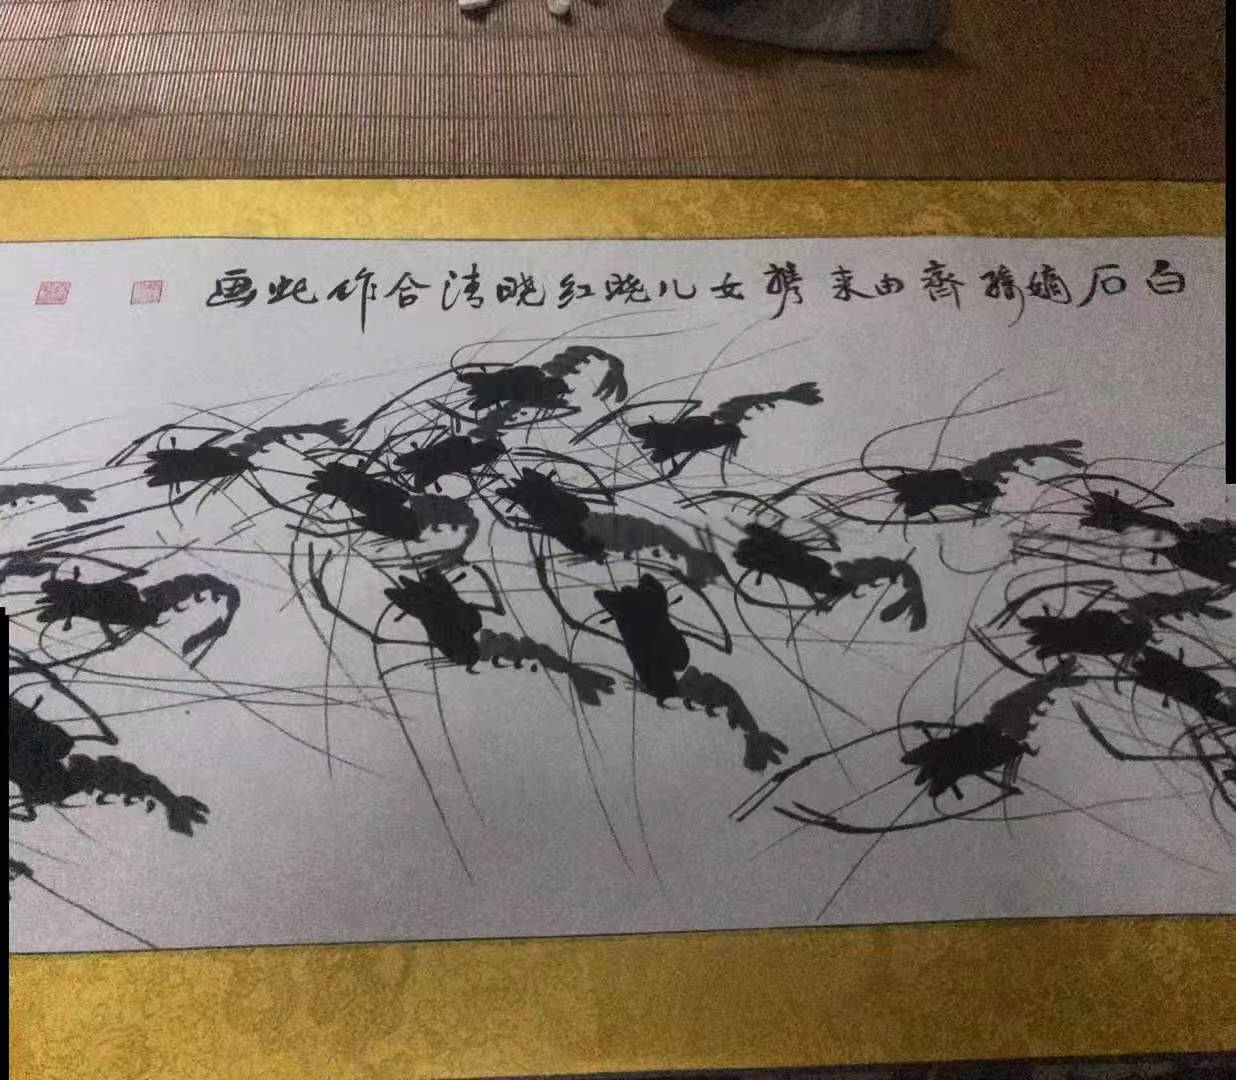 白石嫡孙齊由来携女儿晓红晓清合作此画